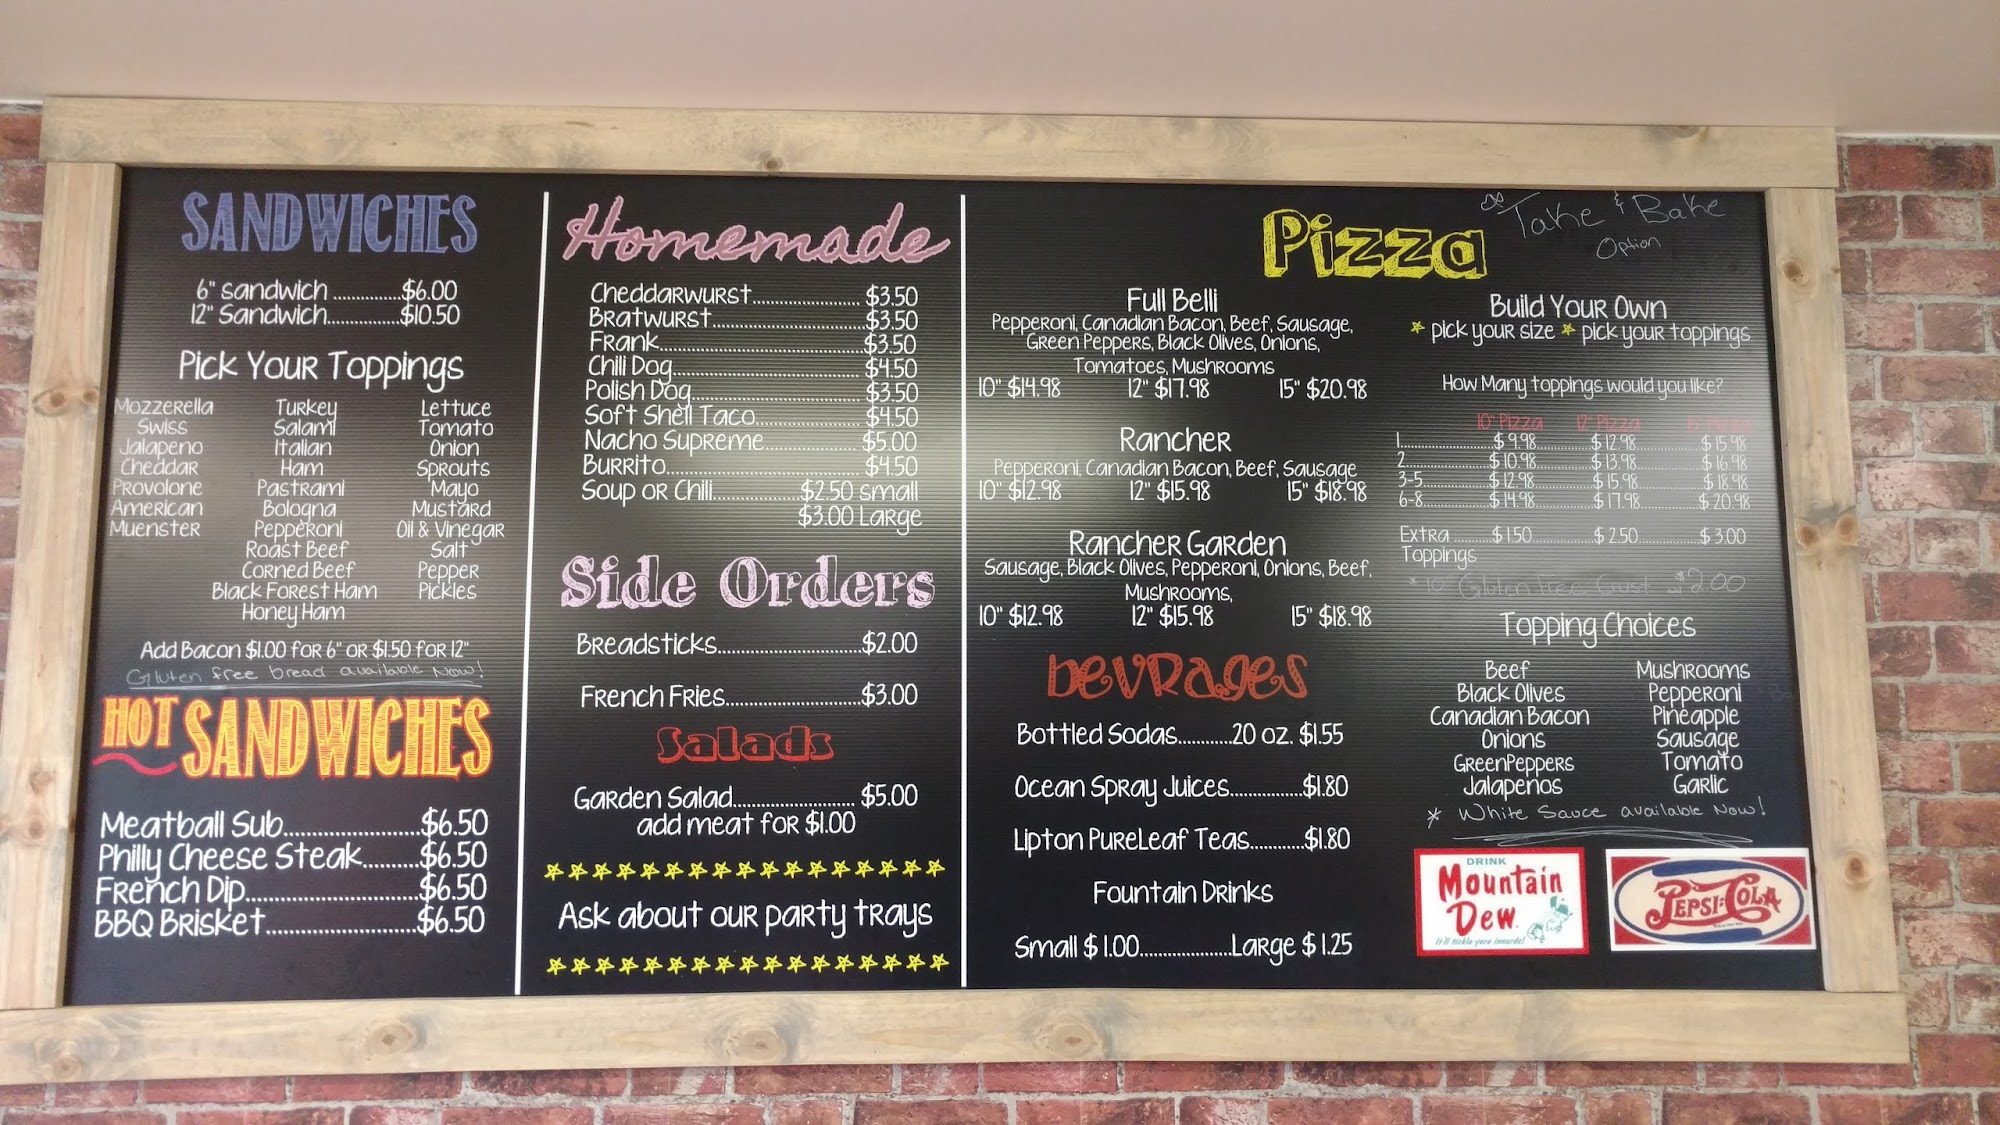 SANDWICHES
6" sandwich ...............$6.00
12" Sandwich................$10.50
Pick Your Toppings
Mozzerella
Swiss
Jalapeno
Cheddar
Provolone
American
Muenster
Turkey
Salami
Italian
Ham
Pastrami
Bologna
Pepperoni
Roast Beef
Corned Beef
Black Forest Ham
Honey Ham
Lettuce
Tomato
Onion
Sprouts
Mayo
Mustard
Oil & Vinegar
Salt
Pepper
Pickles
Add Bacon $1.00 for 6" or $1.50 for 12"
Gluten free bread available Now!
HOT SANDWICHES
Meatball Sub......................$6.50
Philly Cheese Steak.........$6.50
French Dip............................$6.50
BBQ Brisket........................$6.50
Homemade
Cheddarwurst...................... $3.50
Bratwurst..............................$3.50
Frank........................................$3.50
Chili Dog......................................$4.50
Polish Dog..................................$3.50
Soft Shell Taco......................$4.50
Nacho Supreme................... $5.00
Burrito.......................................$4.50
Soup or Chili..................$2.50 small
$3.00 Large
Side Orders
Breadsticks.............................$2.00
French Fries...........................$3.00
Salads
Garden Salad......................... $5.00
add meat for $1.00
Ask about our party trays
Pizza
* Take & Bake
Option
Full Belli
Pepperoni, Canadian Bacon, Beef, Sausage,
Green Peppers, Black Olives, Onions,
Tomatoes, Mushrooms
10" $14.98 12" $17.98 15" $20.98
Rancher
Pepperoni, Canadian Bacon, Beef, Sausage
10" $12.98 12" $15.98 15" $18.98
Rancher Garden
Sausage, Black Olives, Pepperoni, Onions, Beef,
Mushrooms,
10" $12.98 12" $15.98 15" $18.98
bevrages
Bottled Sodas...........20 oz. $1.55
Ocean Spray Juices...............$1.80
Lipton PureLeaf Teas...........$1.80
Fountain Drinks
Small $1.00...................Large $1.25
Build Your Own
* pick your size * pick your toppings
How Many toppings would you like?
10" Pizza 12" Pizza 15" Pizza
1..................$ 9.98............$ 12.98............$ 15.98
2..................$ 10.98............$ 13.98............$ 16.98
3-5..............$ 12.98............$ 15.98............$ 18.98
6-8..............$ 14.98............$ 17.98............$ 20.98
Extra .........$ 1.50...............$ 2.50...............$ 3.00
Toppings
* 10" Gluten free Crust $2.00
Topping Choices
Beef
Black Olives
Canadian Bacon
Onions
GreenPeppers
Jalapenos
Mushrooms
Pepperoni
Pineapple
Sausage
Tomato
Garlic
* White Sauce available Now!
DRINK
Mountain
Dew
It'll tickle yore innards!
PEPSI-COLA